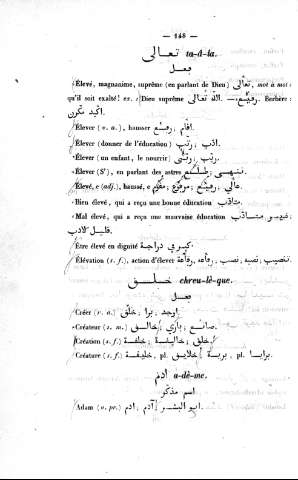 — 148 —
تعالى ta-â-la.
فعل
Élevé, magnanime, suprême (en parlant de Dieu) تعالى, mot à mot
qu'il soit exalté! ex. : Dieu suprême الله تعالى —. رفيع, Berbère:
Élever (v. a.), hausser اقام, رفع
Élever (donner de l'éducation) ادّب, ربّى
Élever (un enfant, le nourrir) ربّى
Élever (S'), en parlant des astres
Élevé, e (adj.), haussé, e عالي, رفيع, مرفوع
Bien élevé, qui a reçu une bonne éducation متادّب
Mal élevé, qui a reçu une mauvaise éducation غير متادّب
قليل الادب
Être élevé en dignité
Élévation (s. f.), action d'élever
خلق chreu-lè-que.
فعل
Créer (v. a.) اوجد, برا, خلق
Créateur (s. m.) صانع, باري, خالق
Création (s. f.) خلق, خليقة
Créature (s. f.) خليقة, pl. خلايق, بريّة, pl. برايا
آدم a-dème.
اسم مذكر
Adam (n. pr.) ابو البشر, آدم